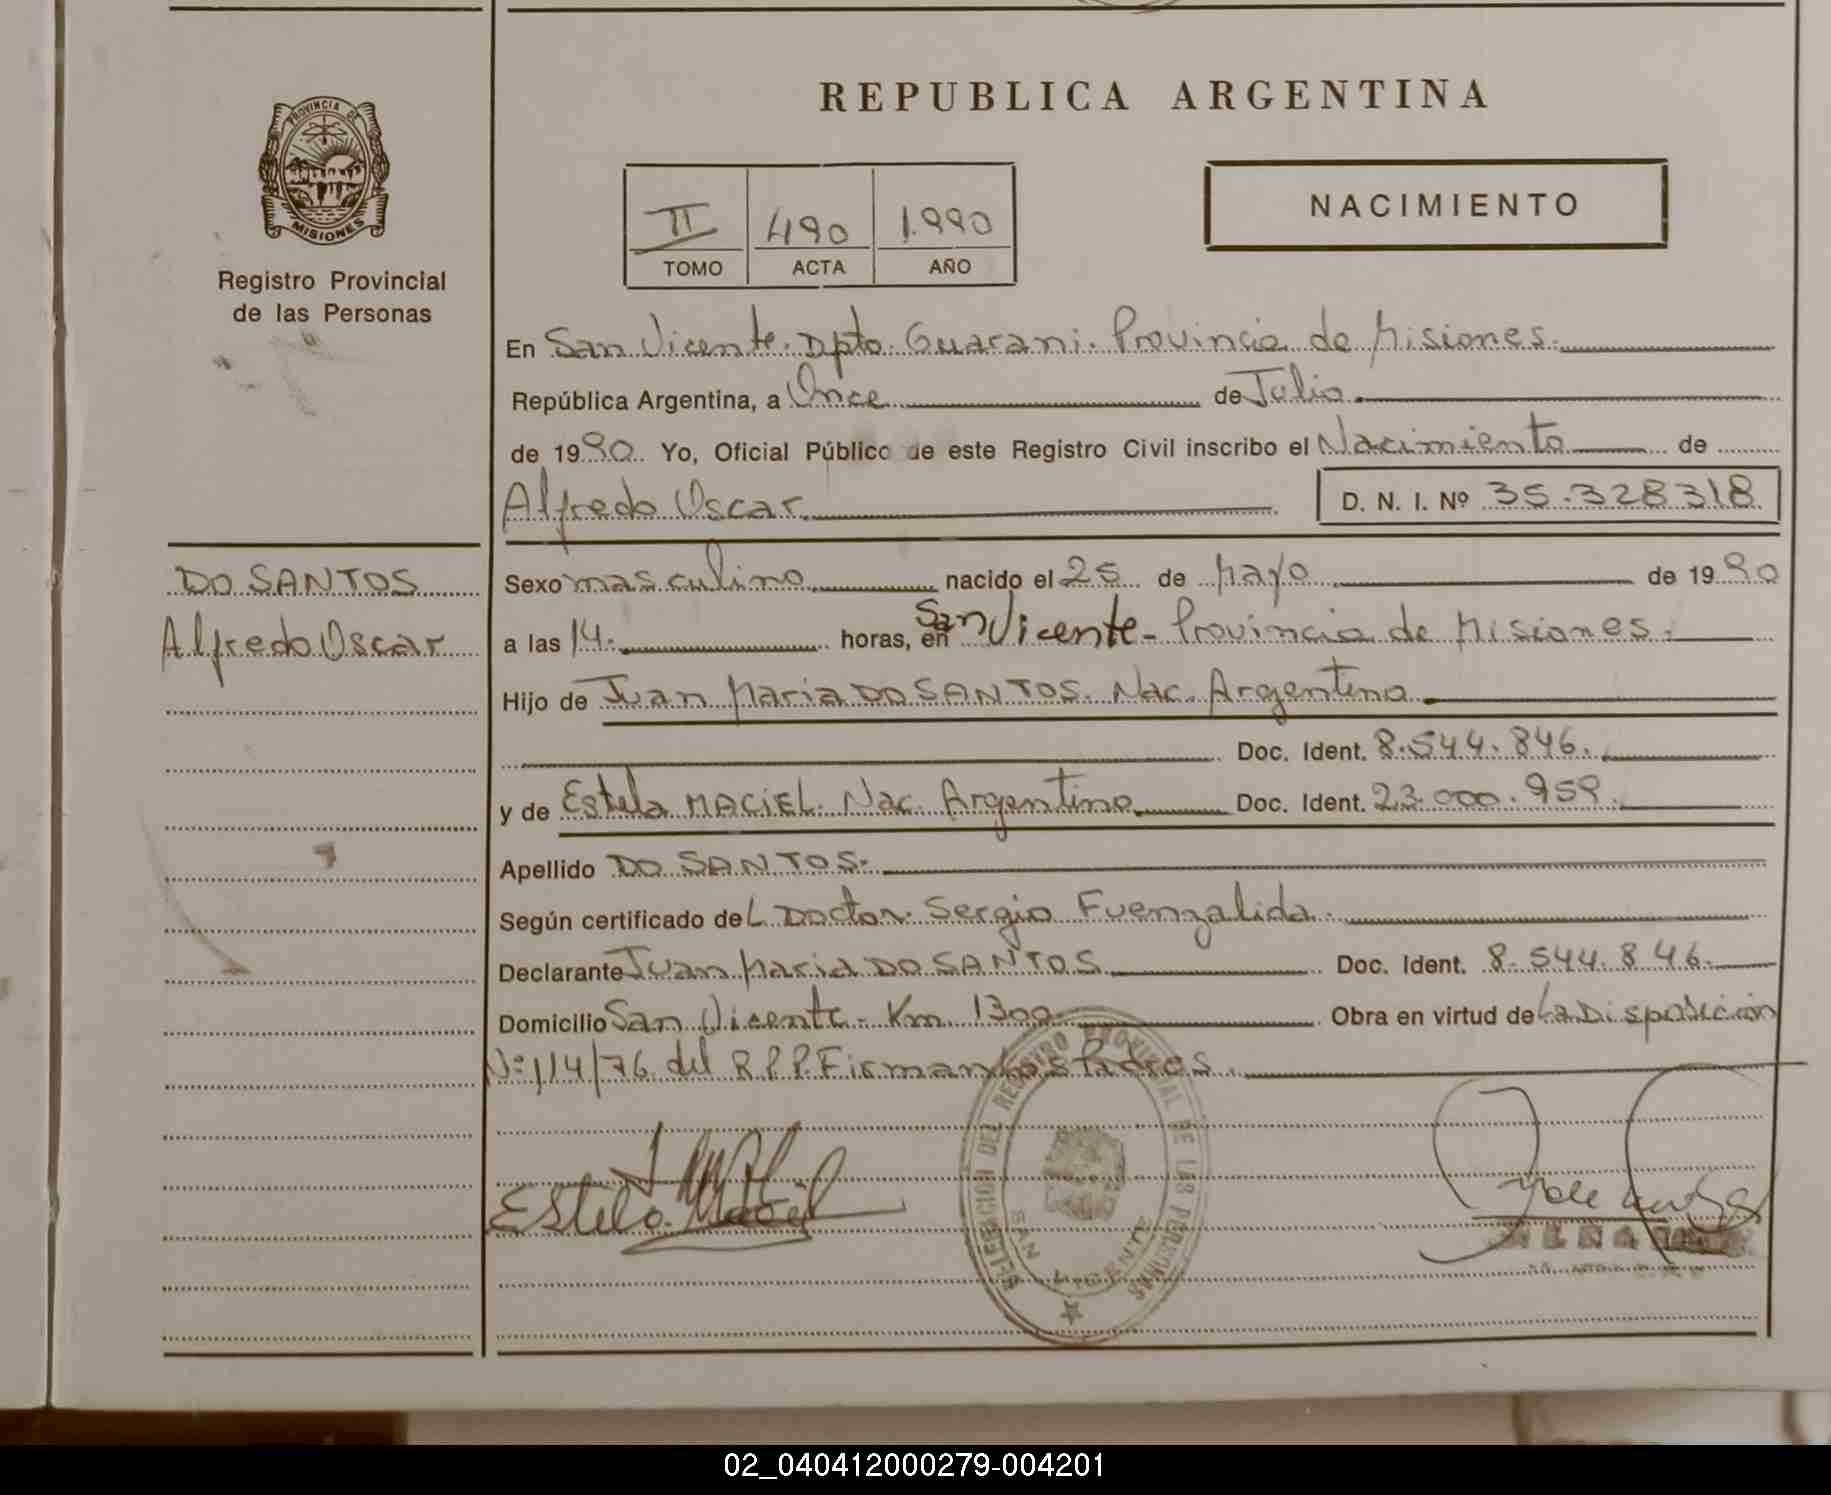 REPUBLICA ARGENTINA
PROVINCIA DE
MISIONES
Registro Provincial
de las Personas
NACIMIENTO
II 490 1.990
TOMO ACTA AÑO
En San Vicente. Dpto. Guarani. Provincia de Misiones.
República Argentina, a Once de Julio.
de 1990. Yo, Oficial Público de este Registro Civil inscribo el Nacimiento de
Alfredo Oscar. D. N. I. Nº 35.328318
DO SANTOS
Alfredo Oscar
Sexo masculino nacido el 25 de Mayo de 1990
a las 14. horas, en San Vicente - Provincia de Misiones.
Hijo de Juan Maria DO SANTOS. Nac. Argentina.
Doc. Ident. 8.544.846.
y de Estela MACIEL. Nac. Argentina Doc. Ident. 23.000.959.
Apellido DO SANTOS.
Según certificado del Doctor. Sergio Fuenzalida.
Declarante Juan Maria DO SANTOS Doc. Ident. 8.544.846.
Domicilio San Vicente - Km 1300. Obra en virtud de La Disposición
Nº 114/76 del R.P.P. Firman los Padres.
DELEGACION DEL REGISTRO PROVINCIAL DE LAS PERSONAS
SAN VICENTE
Estela Maciel
02_040412000279-004201